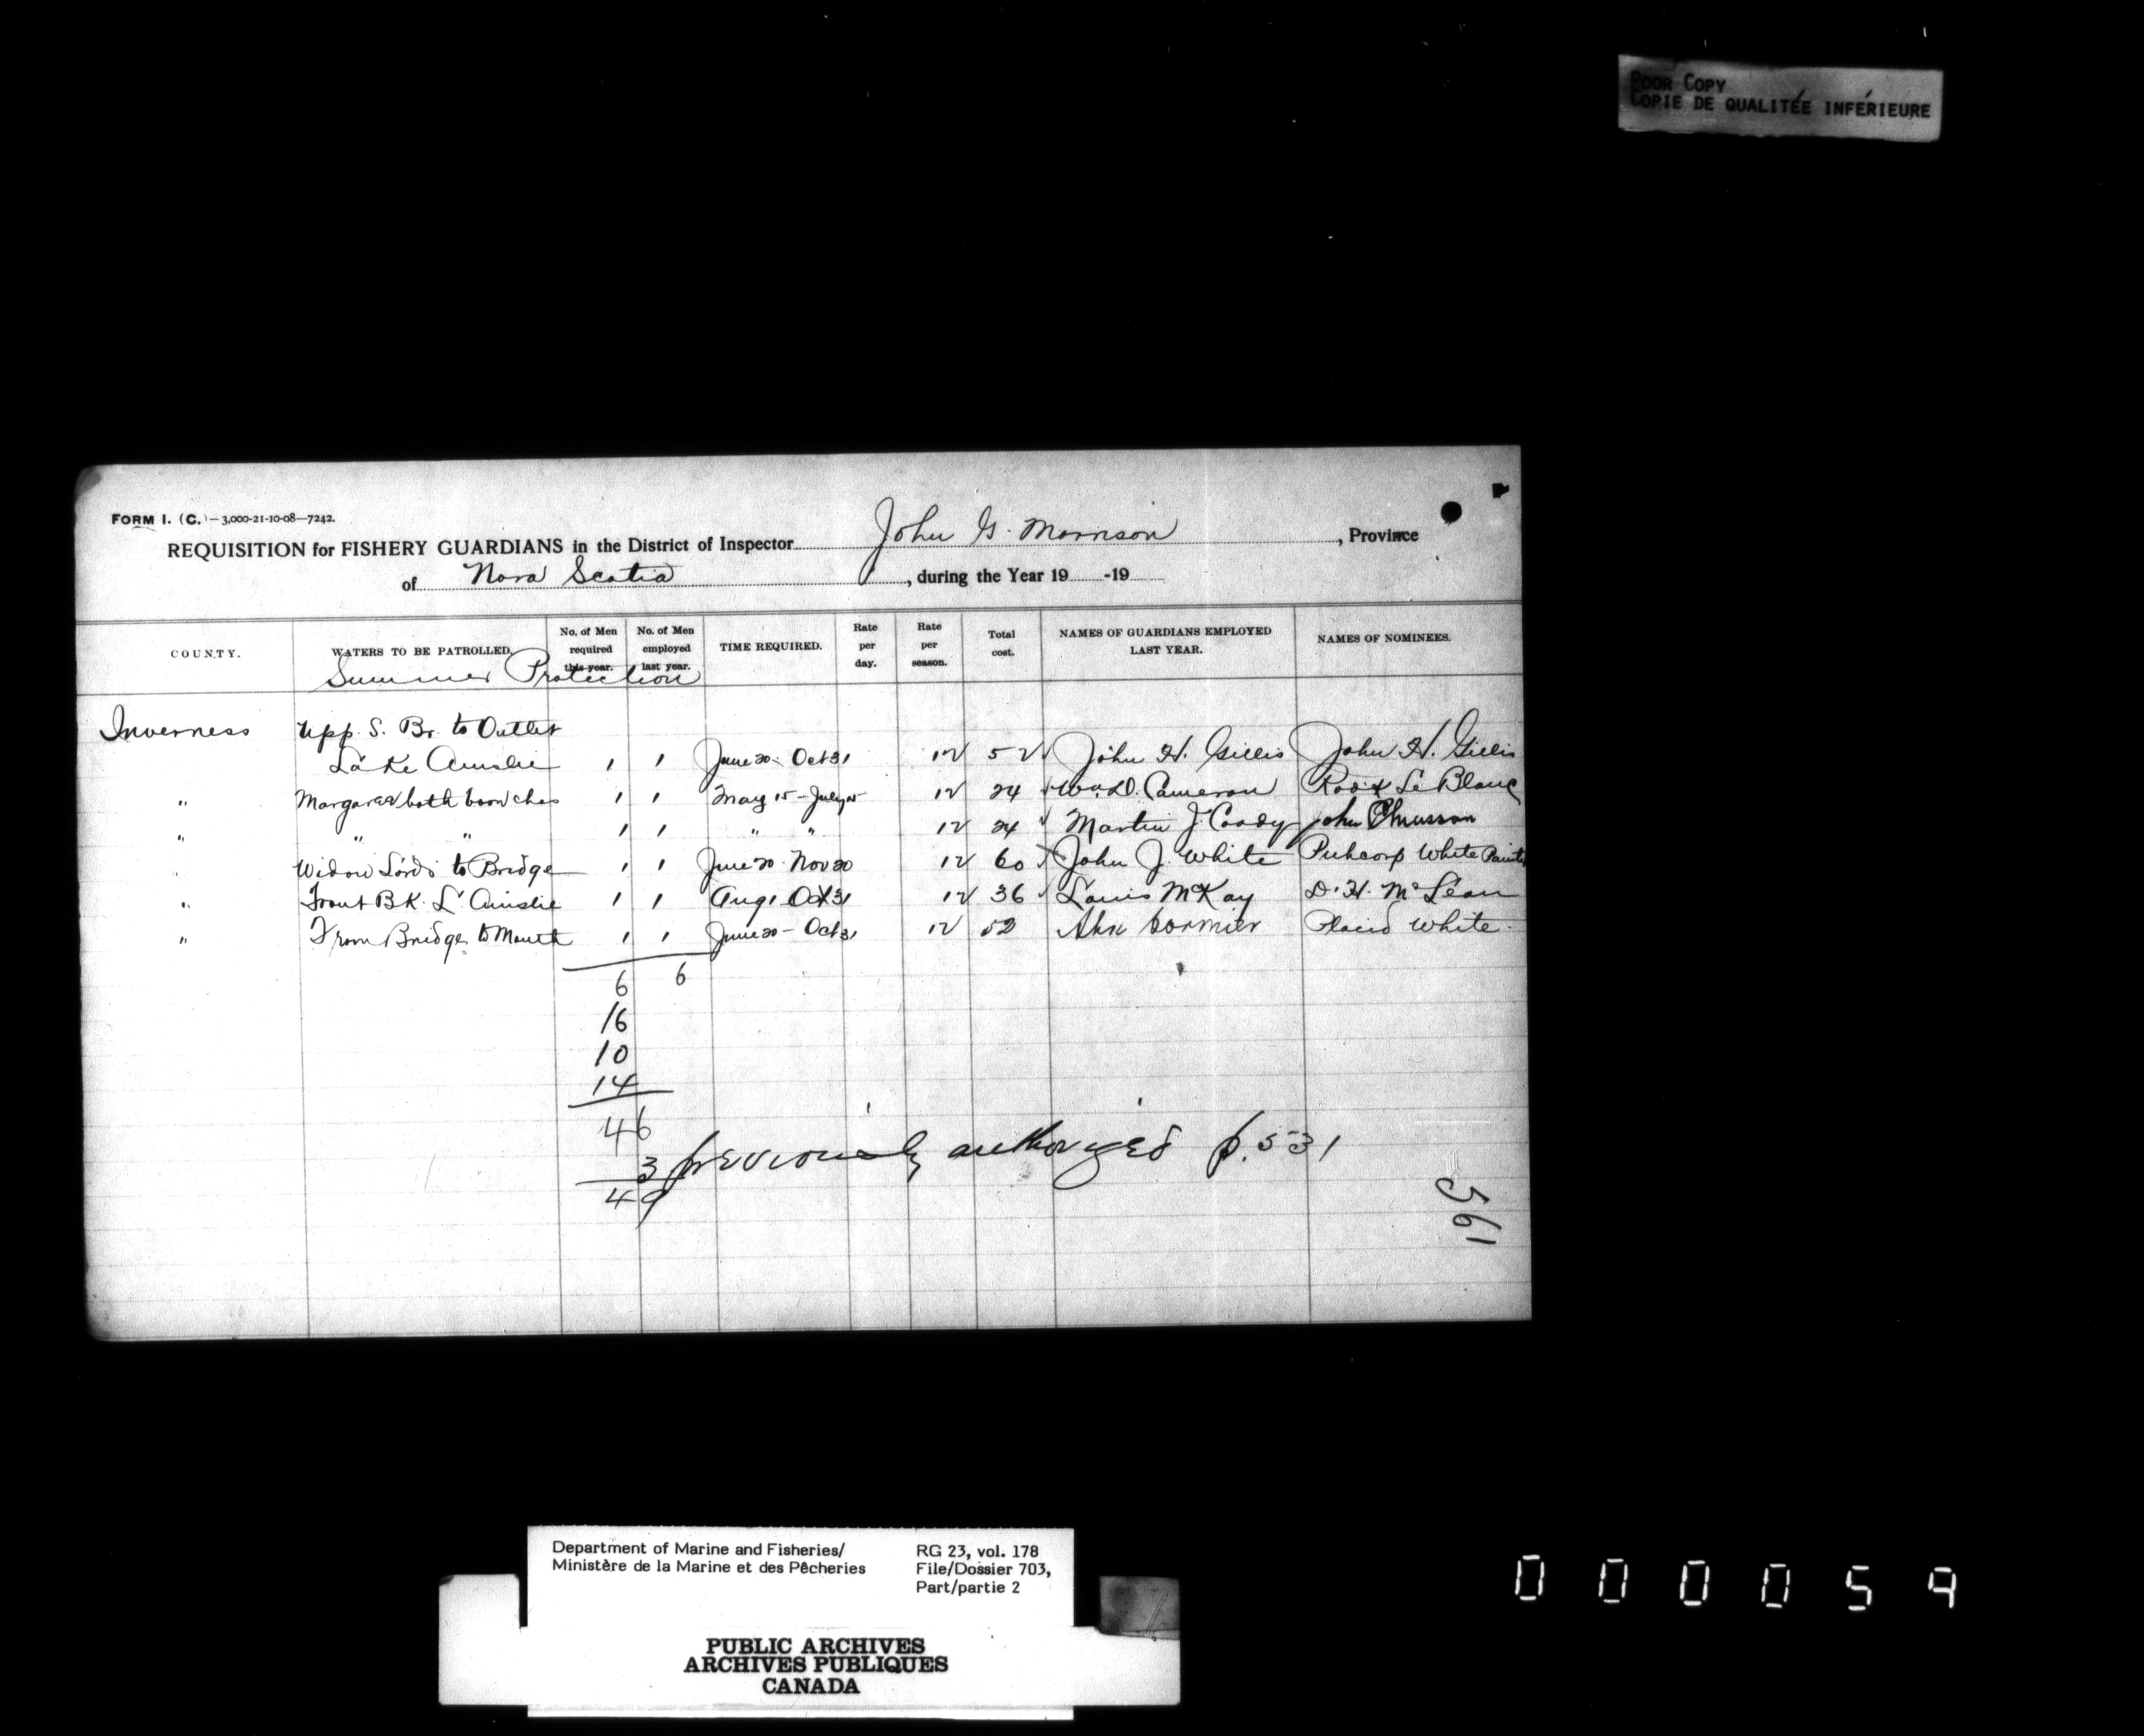 POOR COPY
COPIE DE QUALITÉE INFÉRIEURE
FORM I. (C.)—3,000-21-10-08—7242.
REQUISITION for FISHERY GUARDIANS in the District of Inspector John G. Morrison, Province
of Nova Scotia, during the Year 19 -19
COUNTY. WATERS TO BE PATROLLED. No. of Men required this year. No. of Men employed last year. TIME REQUIRED. Rate per day. Rate per season. Total cost. NAMES OF GUARDIANS EMPLOYED LAST YEAR. NAMES OF NOMINEES.
Summer Protection
Inverness Upp. S. Br. to Outlet
Lake Ainslie 1 1 June 20 - Oct 31 12 52 John H. Gillis John H. Gillis
" Margaree both branches 1 1 May 15 - July 15 12 24 Wm D. Cameron Le Blanc
" " " 1 1 " " 12 24 Martin J. Coady John
Widow Lords to Bridge 1 1 June 20 - Nov 20 12 60 John J. White White
" Trout BK. L. Ainslie 1 1 Aug 1 Oct 31 12 36 Louis McKay D. H. McLean
" From Bridge to Mouth 1 1 June 20 - Oct 31 12 52 Cormier Placid White
6 6
16
10
14
46
3 previously authorized p. 531
49
561
Department of Marine and Fisheries/
Ministère de la Marine et des Pêcheries
RG 23, vol. 178
File/Dossier 703,
Part/partie 2
PUBLIC ARCHIVES
ARCHIVES PUBLIQUES
CANADA
000059